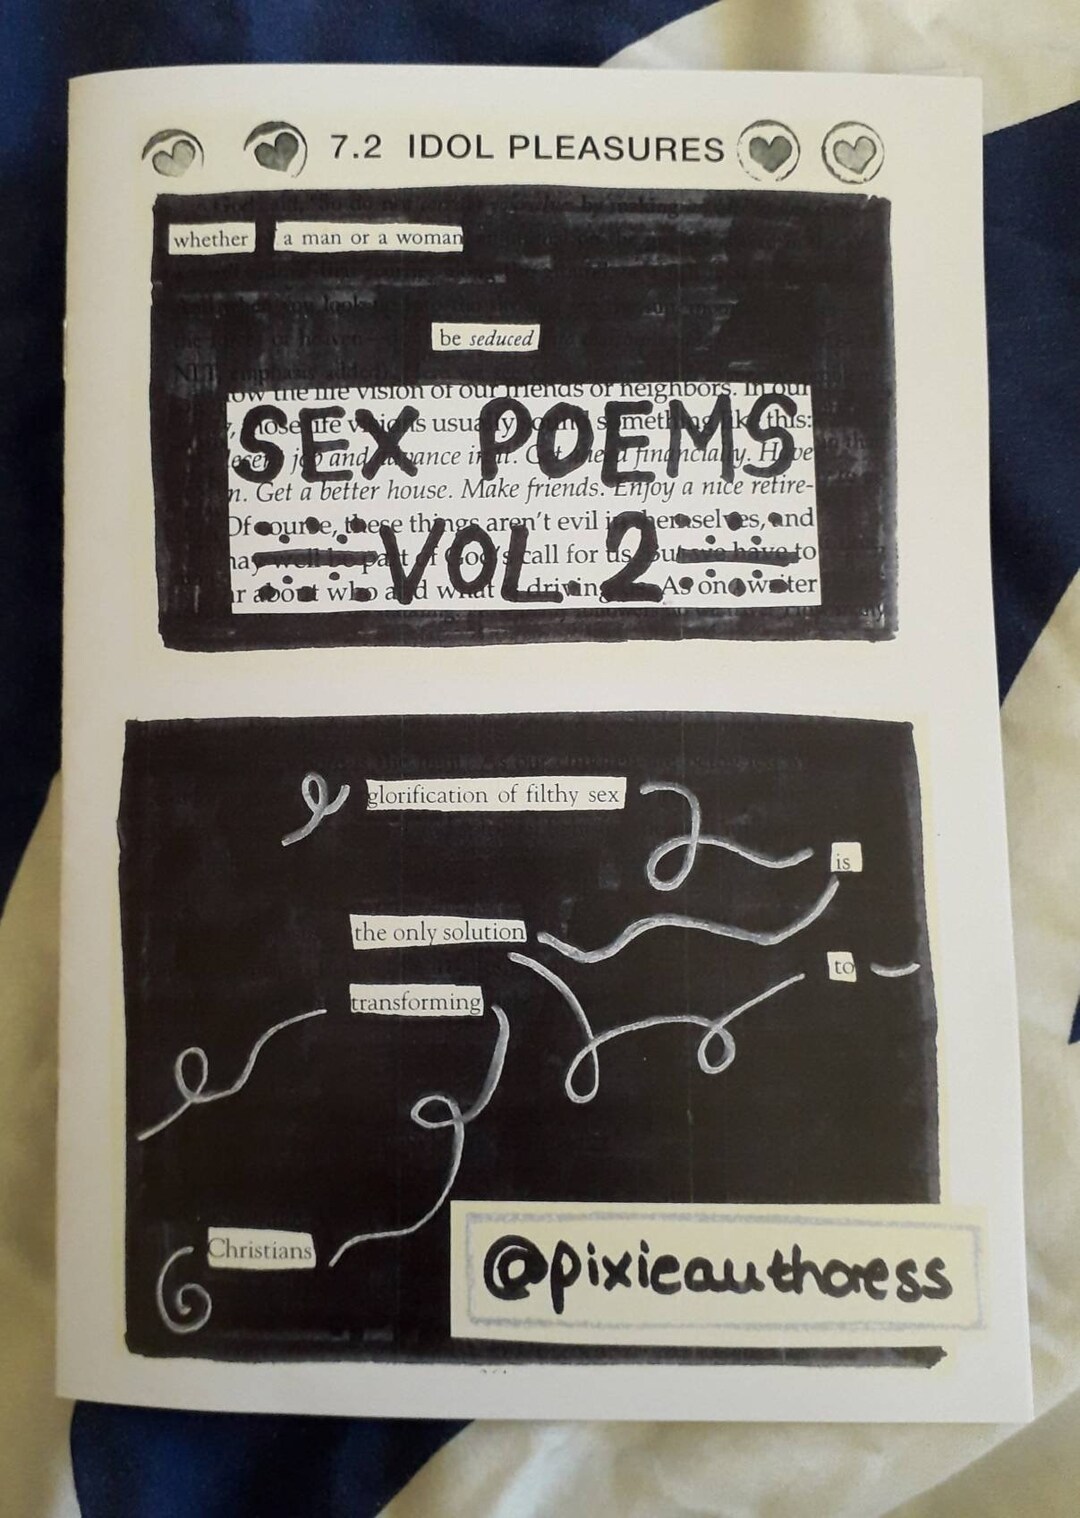 7.2 IDOL PLEASURES
whether a man or a woman
be seduced
low the life vision of our friends or neighbors. In our
those life visions usually sound something like this:
job and advance in it. Get ahead financially. Have
n. Get a better house. Make friends. Enjoy a nice retire-
SEX POEMS
Of course, these things aren't evil in themselves, and
may well be part of God's call for us, but we have to
about who and what driving As one writer
VOL 2
glorification of filthy sex
is
the only solution
to
transforming
Christians
@pixieauthoress